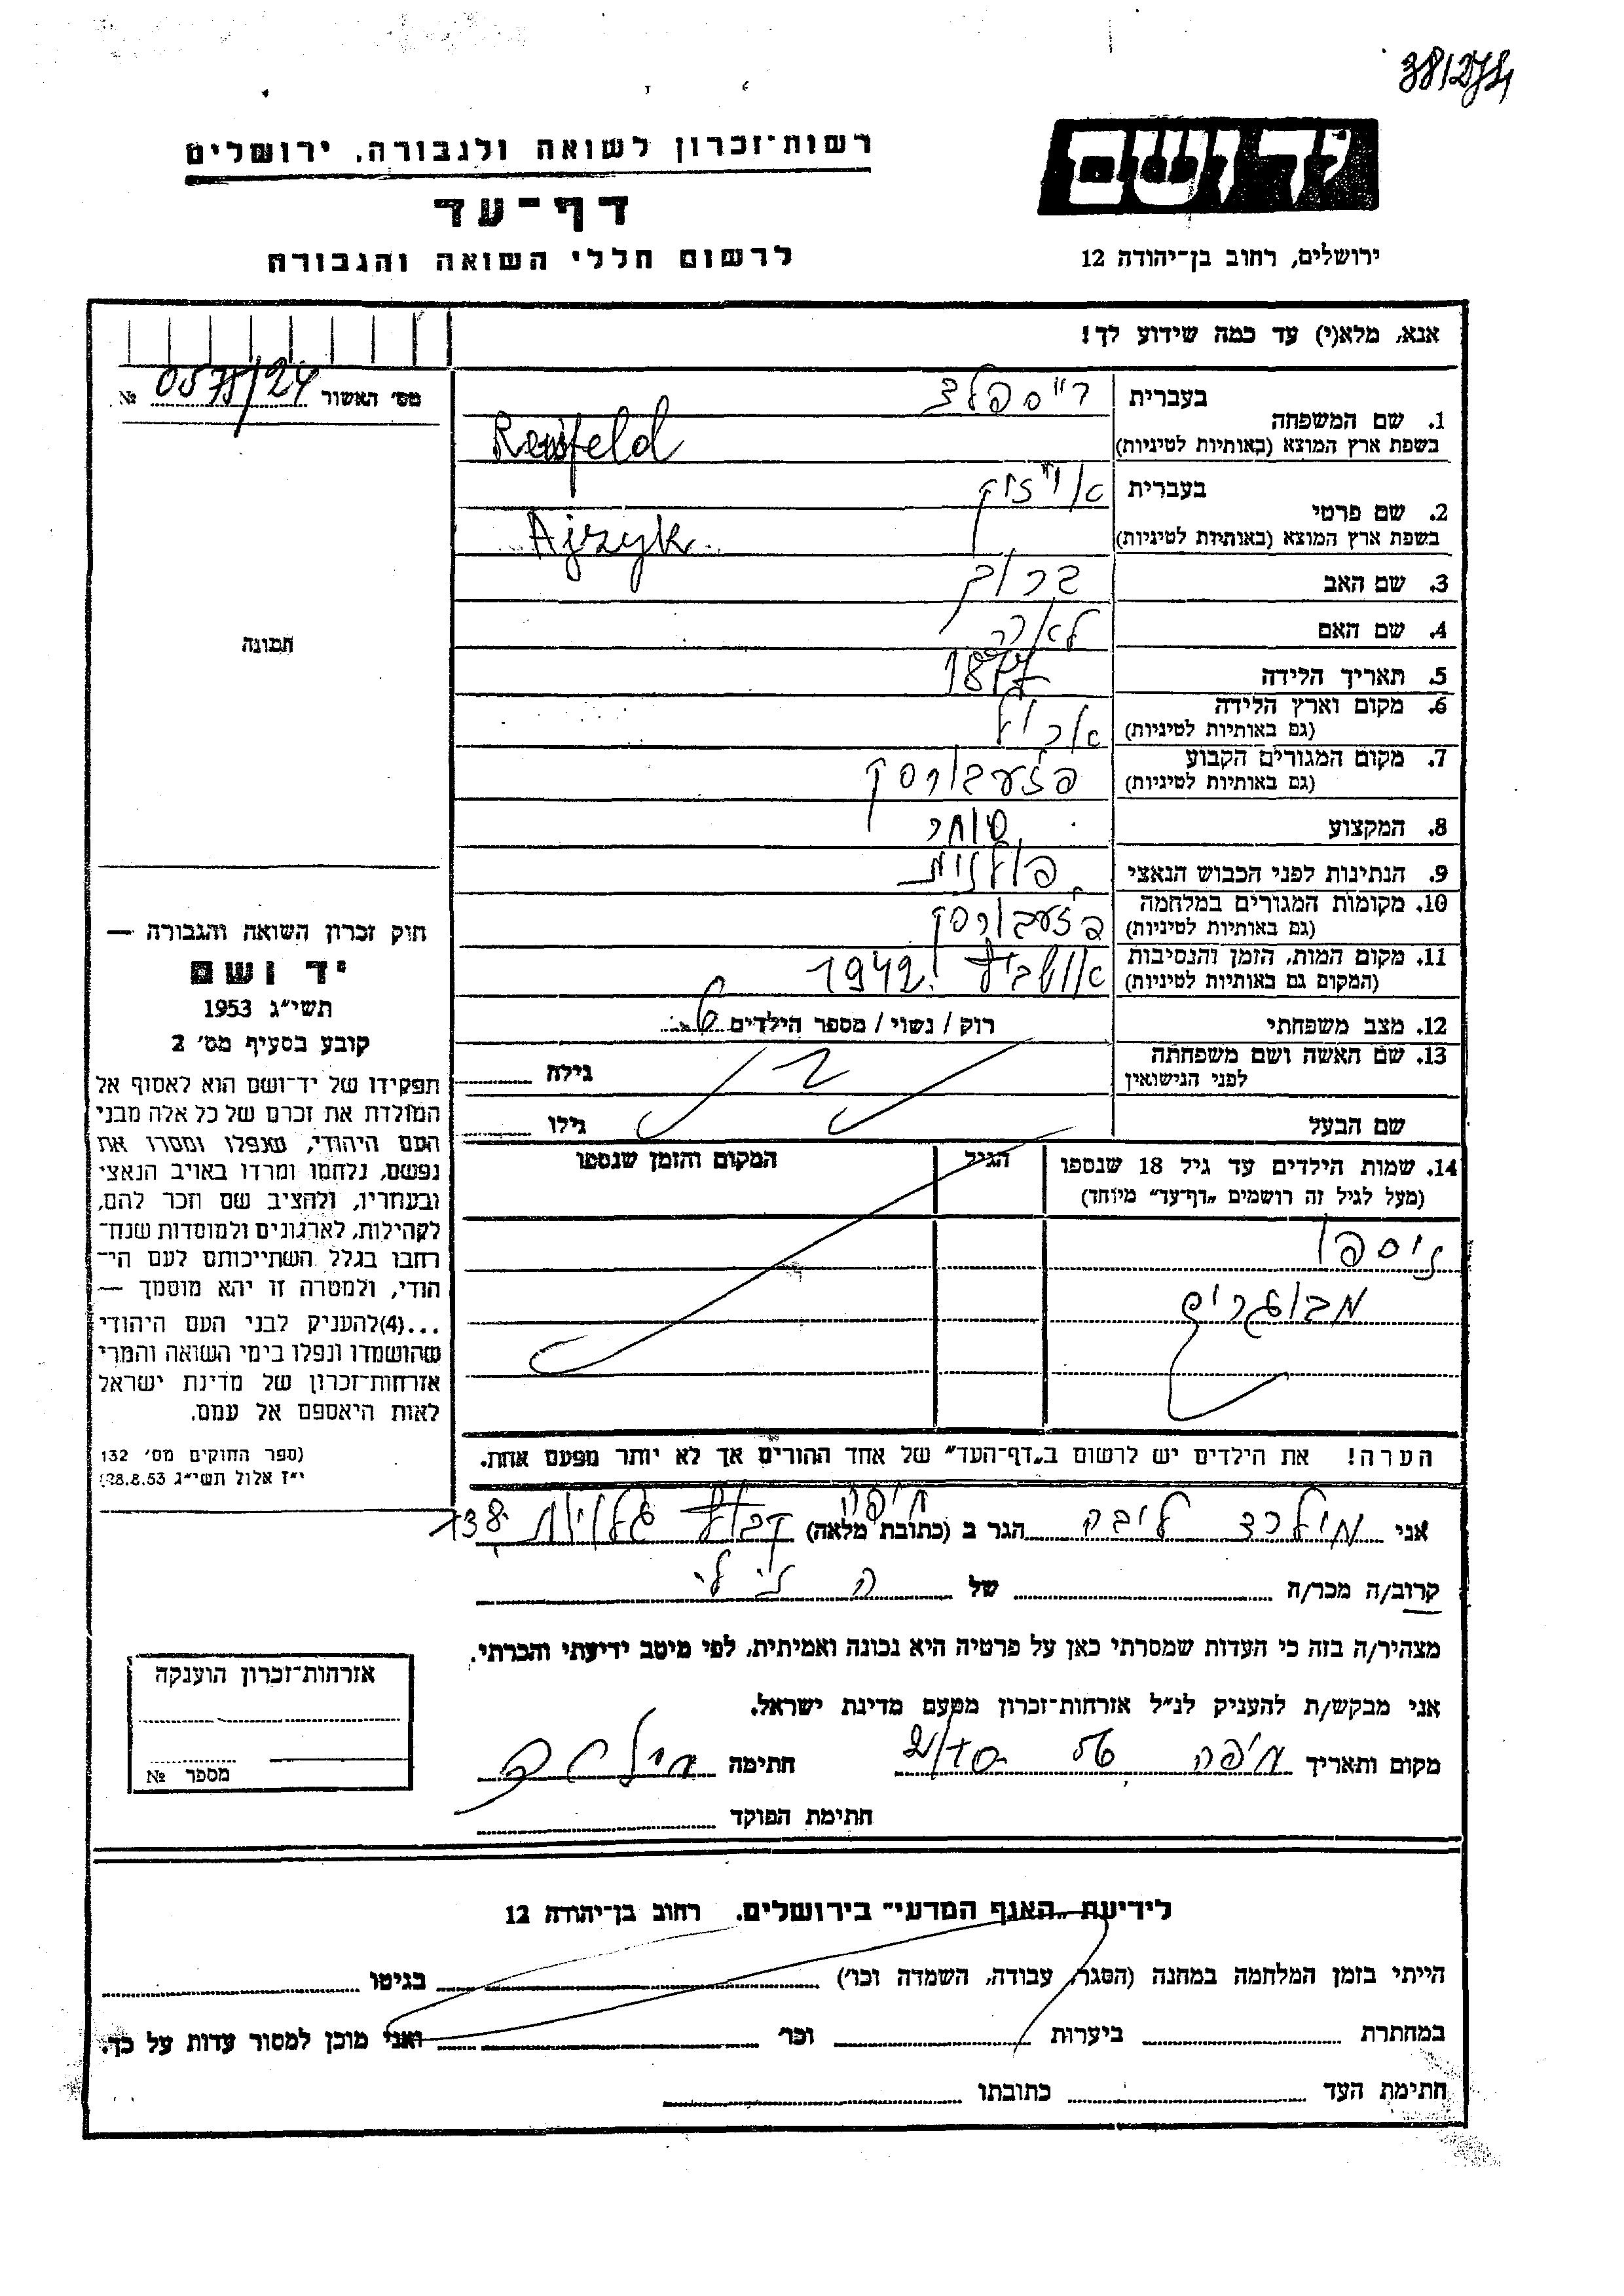 38/274
יד ושם
רשות־זכרון לשואה ולגבורה, ירושלים
דף־עד
לרשום חללי השואה והגבורה
ירושלים, רחוב בן־יהודה 12
אנא, מלא(י) עד כמה שידוע לך!
מס׳ האשור 0575/24 №
תמונה
חוק זכרון השואה והגבורה —
יד ושם
תשי״ג 1953
קובע בסעיף מס׳ 2
תפקידו של יד־ושם הוא לאסוף אל
המולדת את זכרם של כל אלה מבני
העם היהודי, שנפלו ומסרו את
נפשם, נלחמו ומרדו באויב הנאצי
ובעוזריו, ולהציב שם וזכר להם,
לקהילות, לארגונים ולמוסדות שנח־
רבו בגלל השתייכותם לעם הי־
הודי, ולמטרה זו יהא מוסמך —
...(4)להעניק לבני העם היהודי
שהושמדו ונפלו בימי השואה והמרי
אזרחות־זכרון של מדינת ישראל
לאות היאספם אל עמם.
(ספר החוקים מס׳ 132
י״ז אלול תשי״ג 28.8.53)
1. שם המשפחה
בעברית רייספלד
בשפת ארץ המוצא (באותיות לטיניות) Reisfeld
2. שם פרטי
בעברית אייזיק
בשפת ארץ המוצא (באותיות לטיניות) Ajzyk
3. שם האב ברוך
4. שם האם לאה
5. תאריך הלידה 1877
6. מקום וארץ הלידה
(גם באותיות לטיניות)
7. מקום המגורים הקבוע פזעבורסק
(גם באותיות לטיניות)
8. המקצוע סוחר
9. הנתינות לפני הכבוש הנאצי פולנית
10. מקומות המגורים במלחמה פזעבורסק
(גם באותיות לטיניות)
11. מקום המות, הזמן והנסיבות 1942
(המקום גם באותיות לטיניות)
12. מצב משפחתי רוק / נשוי / מספר הילדים
13. שם האשה ושם משפחתה
לפני הנישואין גילה
שם הבעל גילו
14. שמות הילדים עד גיל 18 שנספו הגיל המקום והזמן שנספו
(מעל לגיל זה רושמים „דף־עד״ מיוחד)
ניספו
מבוגרים
הערה! את הילדים יש לרשום ב„דף־העד״ של אחד ההורים אך לא יותר מפעם אחת.
אני מילרד ליבה הגר ב (כתובת מלאה) חיפה קבוץ גלויות 138
קרוב/ה מכר/ה של
מצהיר/ה בזה כי העדות שמסרתי כאן על פרטיה היא נכונה ואמיתית, לפי מיטב ידיעתי והכרתי.
אני מבקש/ת להעניק לנ״ל אזרחות־זכרון מטעם מדינת ישראל.
מקום ותאריך חיפה חתימה
חתימת הפוקד
אזרחות־זכרון הוענקה
מספר №
לידיעת „האגף המדעי״ בירושלים, רחוב בן־יהודה 12
הייתי בזמן המלחמה במחנה (הסגר, עבודה, השמדה וכו׳) בגיטו
במחתרת ביערות וכו׳ ואני מוכן למסור עדות על כך.
חתימת העד כתובתו